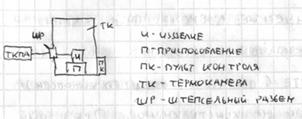 ШР
ТК
ТКПА
И
П
ПК
И - ИЗДЕЛИЕ
П - ПРИСПОСОБЛЕНИЕ
ПК - ПУЛЬТ КОНТРОЛЯ
ТК - ТЕРМОКАМЕРА
ШР - ШТЕПСЕЛЬНЫЙ РАЗЪЕМ